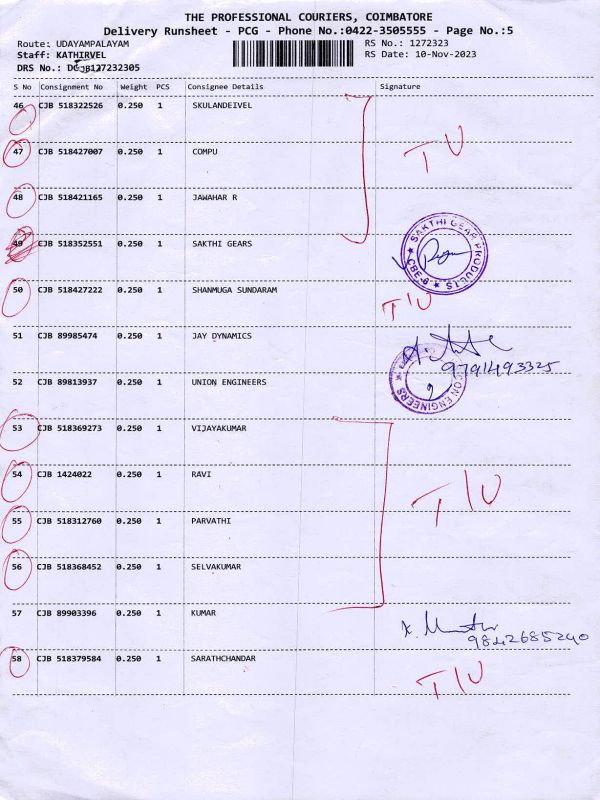 THE PROFESSIONAL COURIERS, COIMBATORE
Delivery Runsheet - PCG - Phone No.:0422-3505555 - Page No.:5
Route: UDAYAMPALAYAM RS No.: 1272323
Staff: KATHIRVEL RS Date: 10-Nov-2023
DRS No.: DCJB127232305
S No Consignment No Weight PCS Consignee Details Signature
46 CJB 518322526 0.250 1 SKULANDEIVEL
47 CJB 518427007 0.250 1 COMPU T U
48 CJB 518421165 0.250 1 JAWAHAR R
49 CJB 518352551 0.250 1 SAKTHI GEARS SAKTHI GEAR PRODUCTS ★ CBE-6 ★
50 CJB 518427222 0.250 1 SHANMUGA SUNDARAM T/U
51 CJB 89985474 0.250 1 JAY DYNAMICS
9791493325
52 CJB 89813937 0.250 1 UNION ENGINEERS ENGINEERS
53 CJB 518369273 0.250 1 VIJAYAKUMAR
54 CJB 1424022 0.250 1 RAVI T/U
55 CJB 518312760 0.250 1 PARVATHI
56 CJB 518368452 0.250 1 SELVAKUMAR
57 CJB 89903396 0.250 1 KUMAR
9842685240
58 CJB 518379584 0.250 1 SARATHCHANDAR T/U